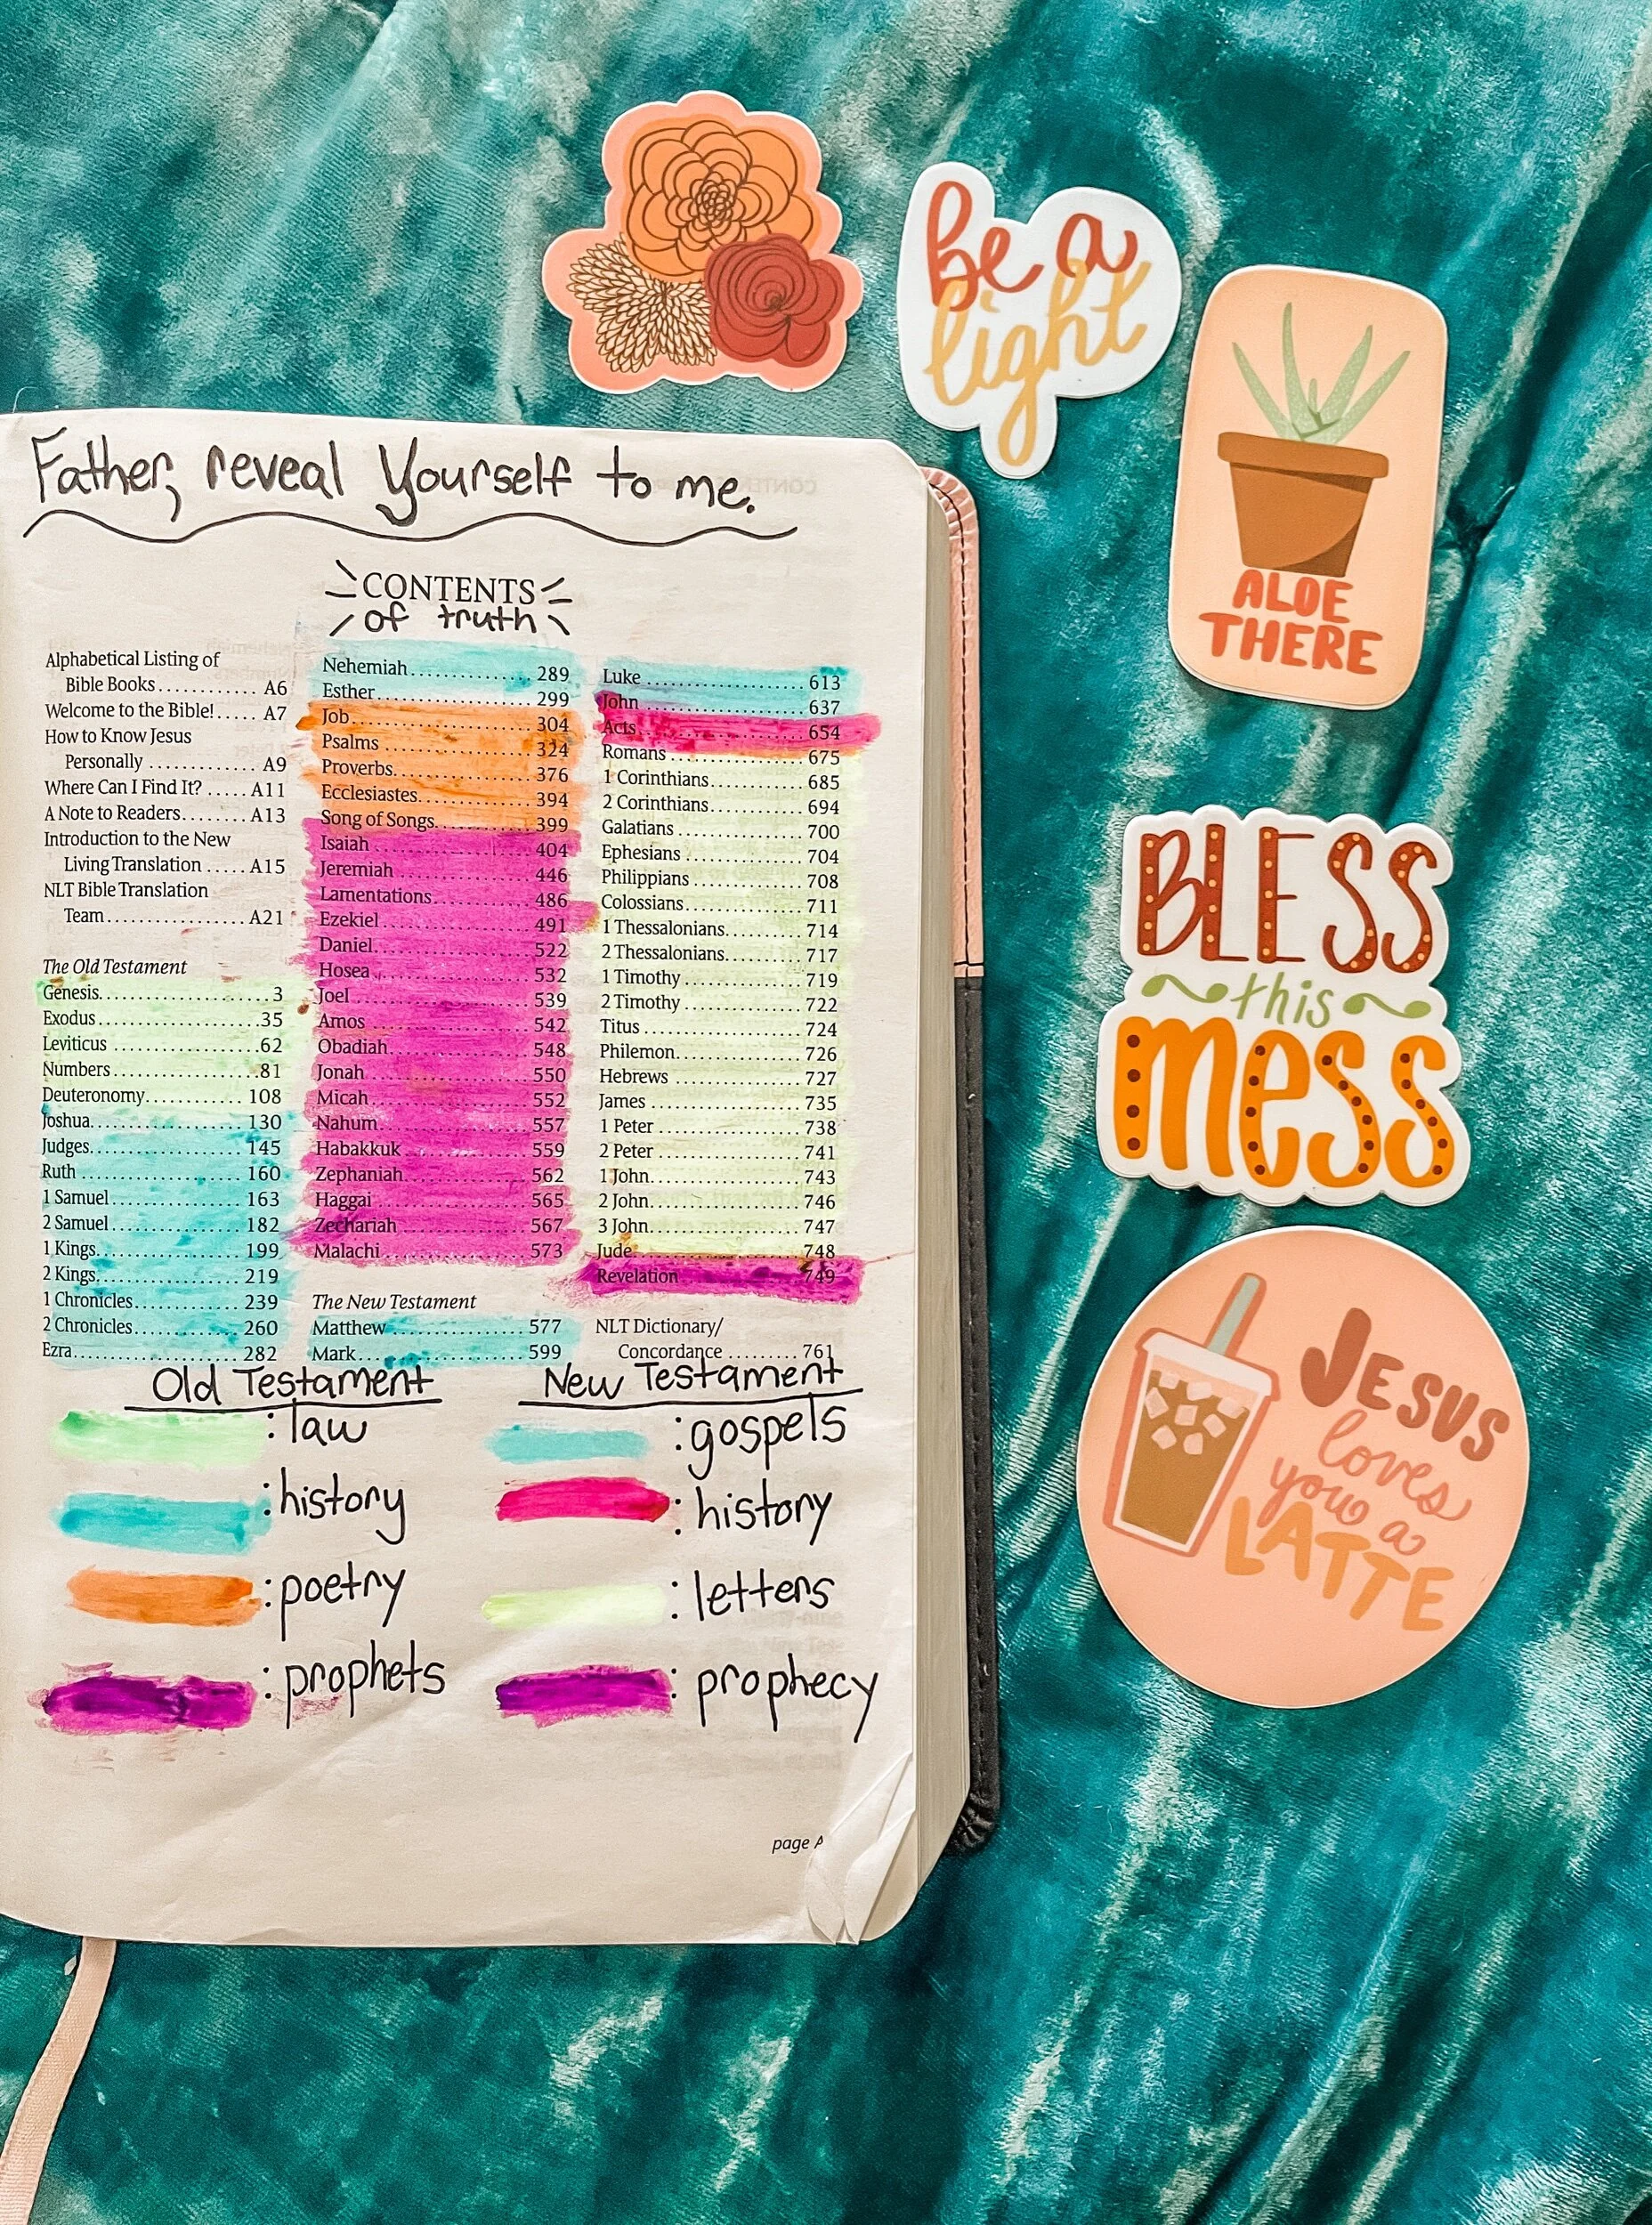 Father, reveal Yourself to me.
CONTENTS
of truth
Alphabetical Listing of
Bible Books ............ A6
Welcome to the Bible! ..... A7
How to Know Jesus
Personally ............ A9
Where Can I Find It? ..... A11
A Note to Readers ........ A13
Introduction to the New
Living Translation ..... A15
NLT Bible Translation
Team ................ A21
The Old Testament
Genesis ........................ 3
Exodus ........................ 35
Leviticus ...................... 62
Numbers ...................... 81
Deuteronomy .............. 108
Joshua ....................... 130
Judges ....................... 145
Ruth ......................... 160
1 Samuel .................... 163
2 Samuel .................... 182
1 Kings ...................... 199
2 Kings ...................... 219
1 Chronicles ................ 239
2 Chronicles ................ 260
Ezra ......................... 282
Nehemiah ................... 289
Esther ....................... 299
Job .......................... 304
Psalms ...................... 324
Proverbs .................... 376
Ecclesiastes ................ 394
Song of Songs .............. 399
Isaiah ....................... 404
Jeremiah .................... 446
Lamentations ............... 486
Ezekiel ...................... 491
Daniel ....................... 522
Hosea ....................... 532
Joel ......................... 539
Amos ........................ 542
Obadiah ..................... 548
Jonah ....................... 550
Micah ....................... 552
Nahum ...................... 557
Habakkuk ................... 559
Zephaniah .................. 562
Haggai ...................... 565
Zechariah ................... 567
Malachi ..................... 573
The New Testament
Matthew .................... 577
Mark ........................ 599
Luke ........................ 613
John ........................ 637
Acts ......................... 654
Romans ..................... 675
1 Corinthians ............... 685
2 Corinthians ............... 694
Galatians ................... 700
Ephesians ................... 704
Philippians .................. 708
Colossians .................. 711
1 Thessalonians ............. 714
2 Thessalonians ............. 717
1 Timothy ................... 719
2 Timothy ................... 722
Titus ........................ 724
Philemon .................... 726
Hebrews .................... 727
James ....................... 735
1 Peter ...................... 738
2 Peter ...................... 741
1 John ...................... 743
2 John ...................... 746
3 John ...................... 747
Jude ........................ 748
Revelation .................. 749
NLT Dictionary/
Concordance ......... 761
Old Testament
: law
: history
: poetry
: prophets
New Testament
: gospels
: history
: letters
: prophecy
page A
be a
light
ALOE
THERE
BLESS
this
mess
JESUS
loves
you a
LATTE